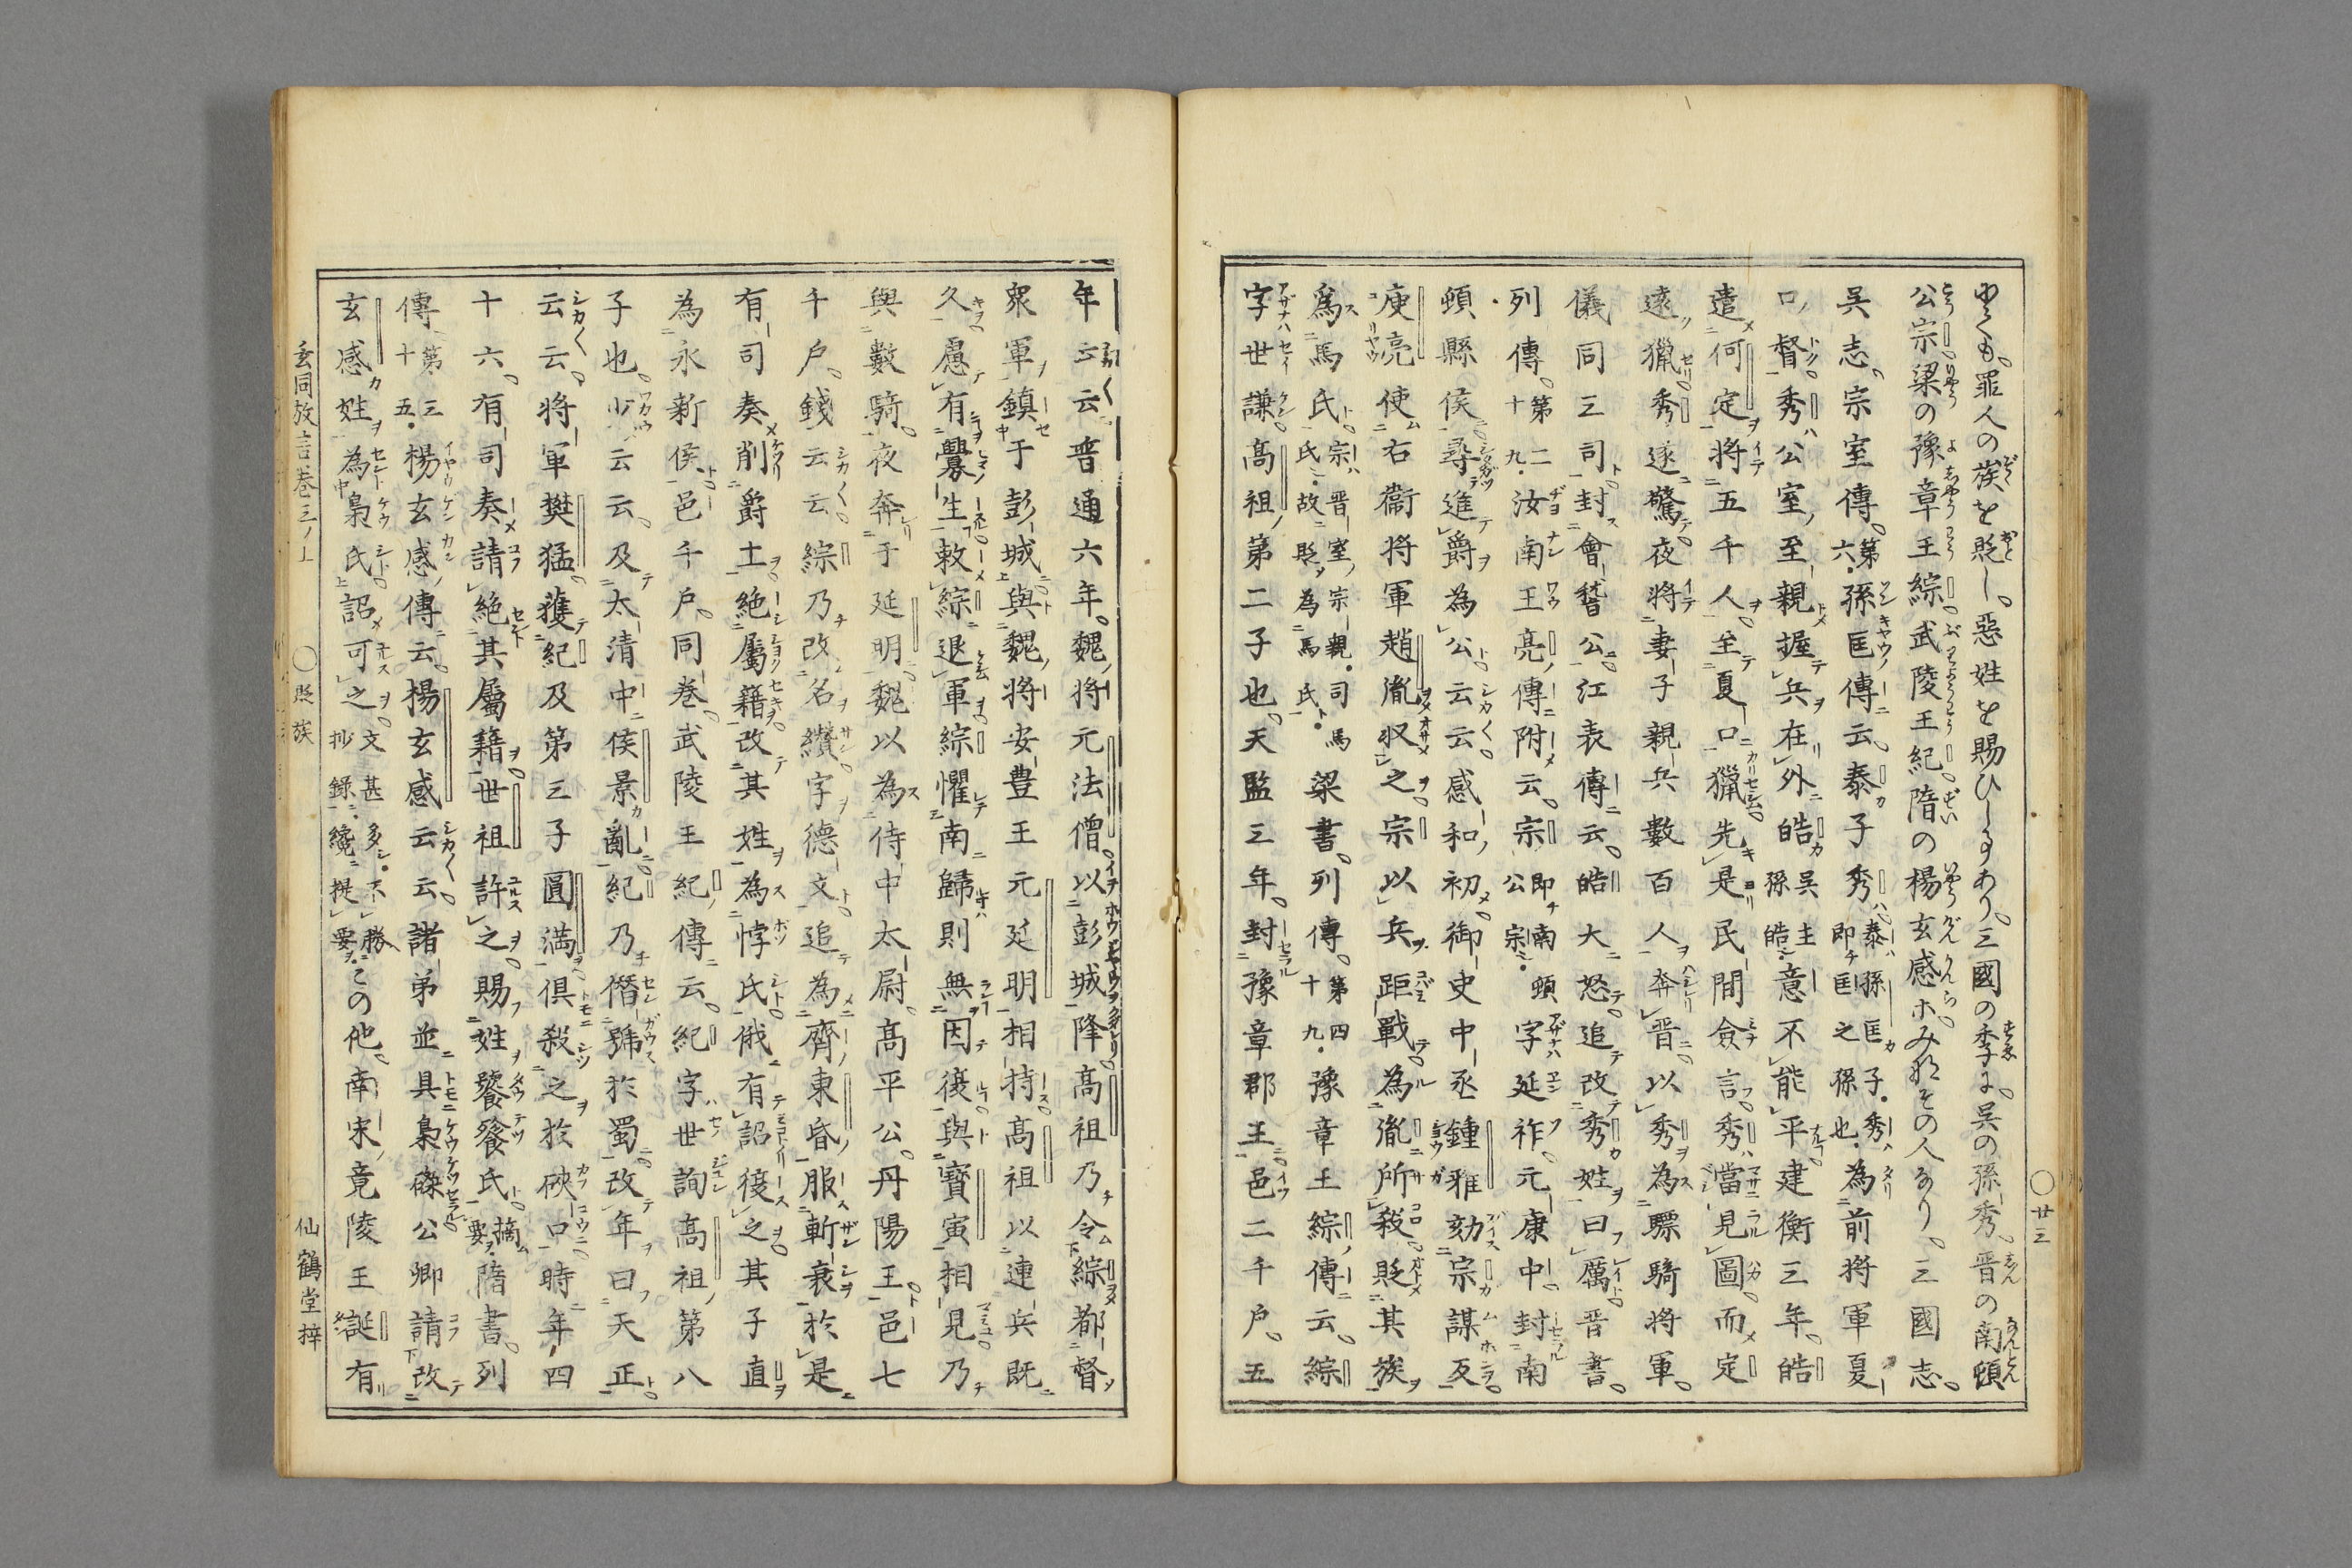 罪人の族を貶し。惡姓を賜ひしあり。三國の季に。呉の孫秀。晋の南頓
公宗。梁の豫章王綜。武陵王紀。隋の楊玄感ホみなその人なり。三國志。
呉志。宗室傳。第六。孫匡傳云。泰子秀。泰ハ孫匡カ子。秀ハ即チ匡之孫也。為前將軍夏
口督。秀公室至親。握兵在外。皓呉主孫皓。意不能平。建衡三年。皓
遣何定將五千人。至夏口獵。先是民間僉言。秀當見圖。而定
遠獵。秀遂驚。夜將妻子親兵數百人奔晋。以秀為驃騎將軍。
儀同三司。封會稽公。江表傳云。皓大怒。追改秀姓曰厲。晋書。
列傳。第二十九。汝南王亮傳附云。宗即チ南頓公宗。字延祚。元康中。封南
頓縣侯。尋進爵為公。云云。咸和初。御史中丞鍾雅劾宗謀反。
庾亮使右衞將軍趙胤収之。宗以兵距戰。為胤所殺。貶其族
爲馬氏。宗ハ晋室ノ宗親。司馬氏。故貶為馬氏。梁書。列傳。第四十九。豫章王綜傳云。綜
字世謙。高祖第二子也。天監三年。封豫章郡王。邑二千戶。五
年云云。普通六年。魏將元法僧。以彭城降。高祖乃令綜都督
衆軍。鎮于彭城。與魏將安豊王元延明相持。高祖以連兵既
久。慮有釁生。敕綜退軍。綜懼南歸則無因復與寶寅相見。乃
與數騎。夜奔于延明。魏以為侍中太尉。高平公。丹陽王。邑七
千戶。錢云云。綜乃改名纉。字德文。追為齊東昏。服斬衰。於是
有司奏。削爵土。絕屬籍。改其姓為悖氏。俄有詔復之。其子直
為永新侯。邑千戶。同巻。武陵王紀傳云。紀字世詢。高祖第八
子也。少云云。及太清中侯景亂。紀乃僭號於蜀。改年曰天正。
云云。將軍樊猛。獲紀及第三子圓滿。俱殺之於硤口。時年四
十六。有司奏請絕其屬籍。世祖許之。賜姓饕餮氏。摘要。隋書。列
傳。第三十五。楊玄感傳云。楊玄感云云。諸弟並具梟磔。公卿請改
玄感姓為梟氏。詔可之。文甚多シ。不勝抄錄。纔提要。この他。南宋。竟陵王誕有
玄同放言巻三ノ上　〇貶族　仙鶴堂梓
〇廿三